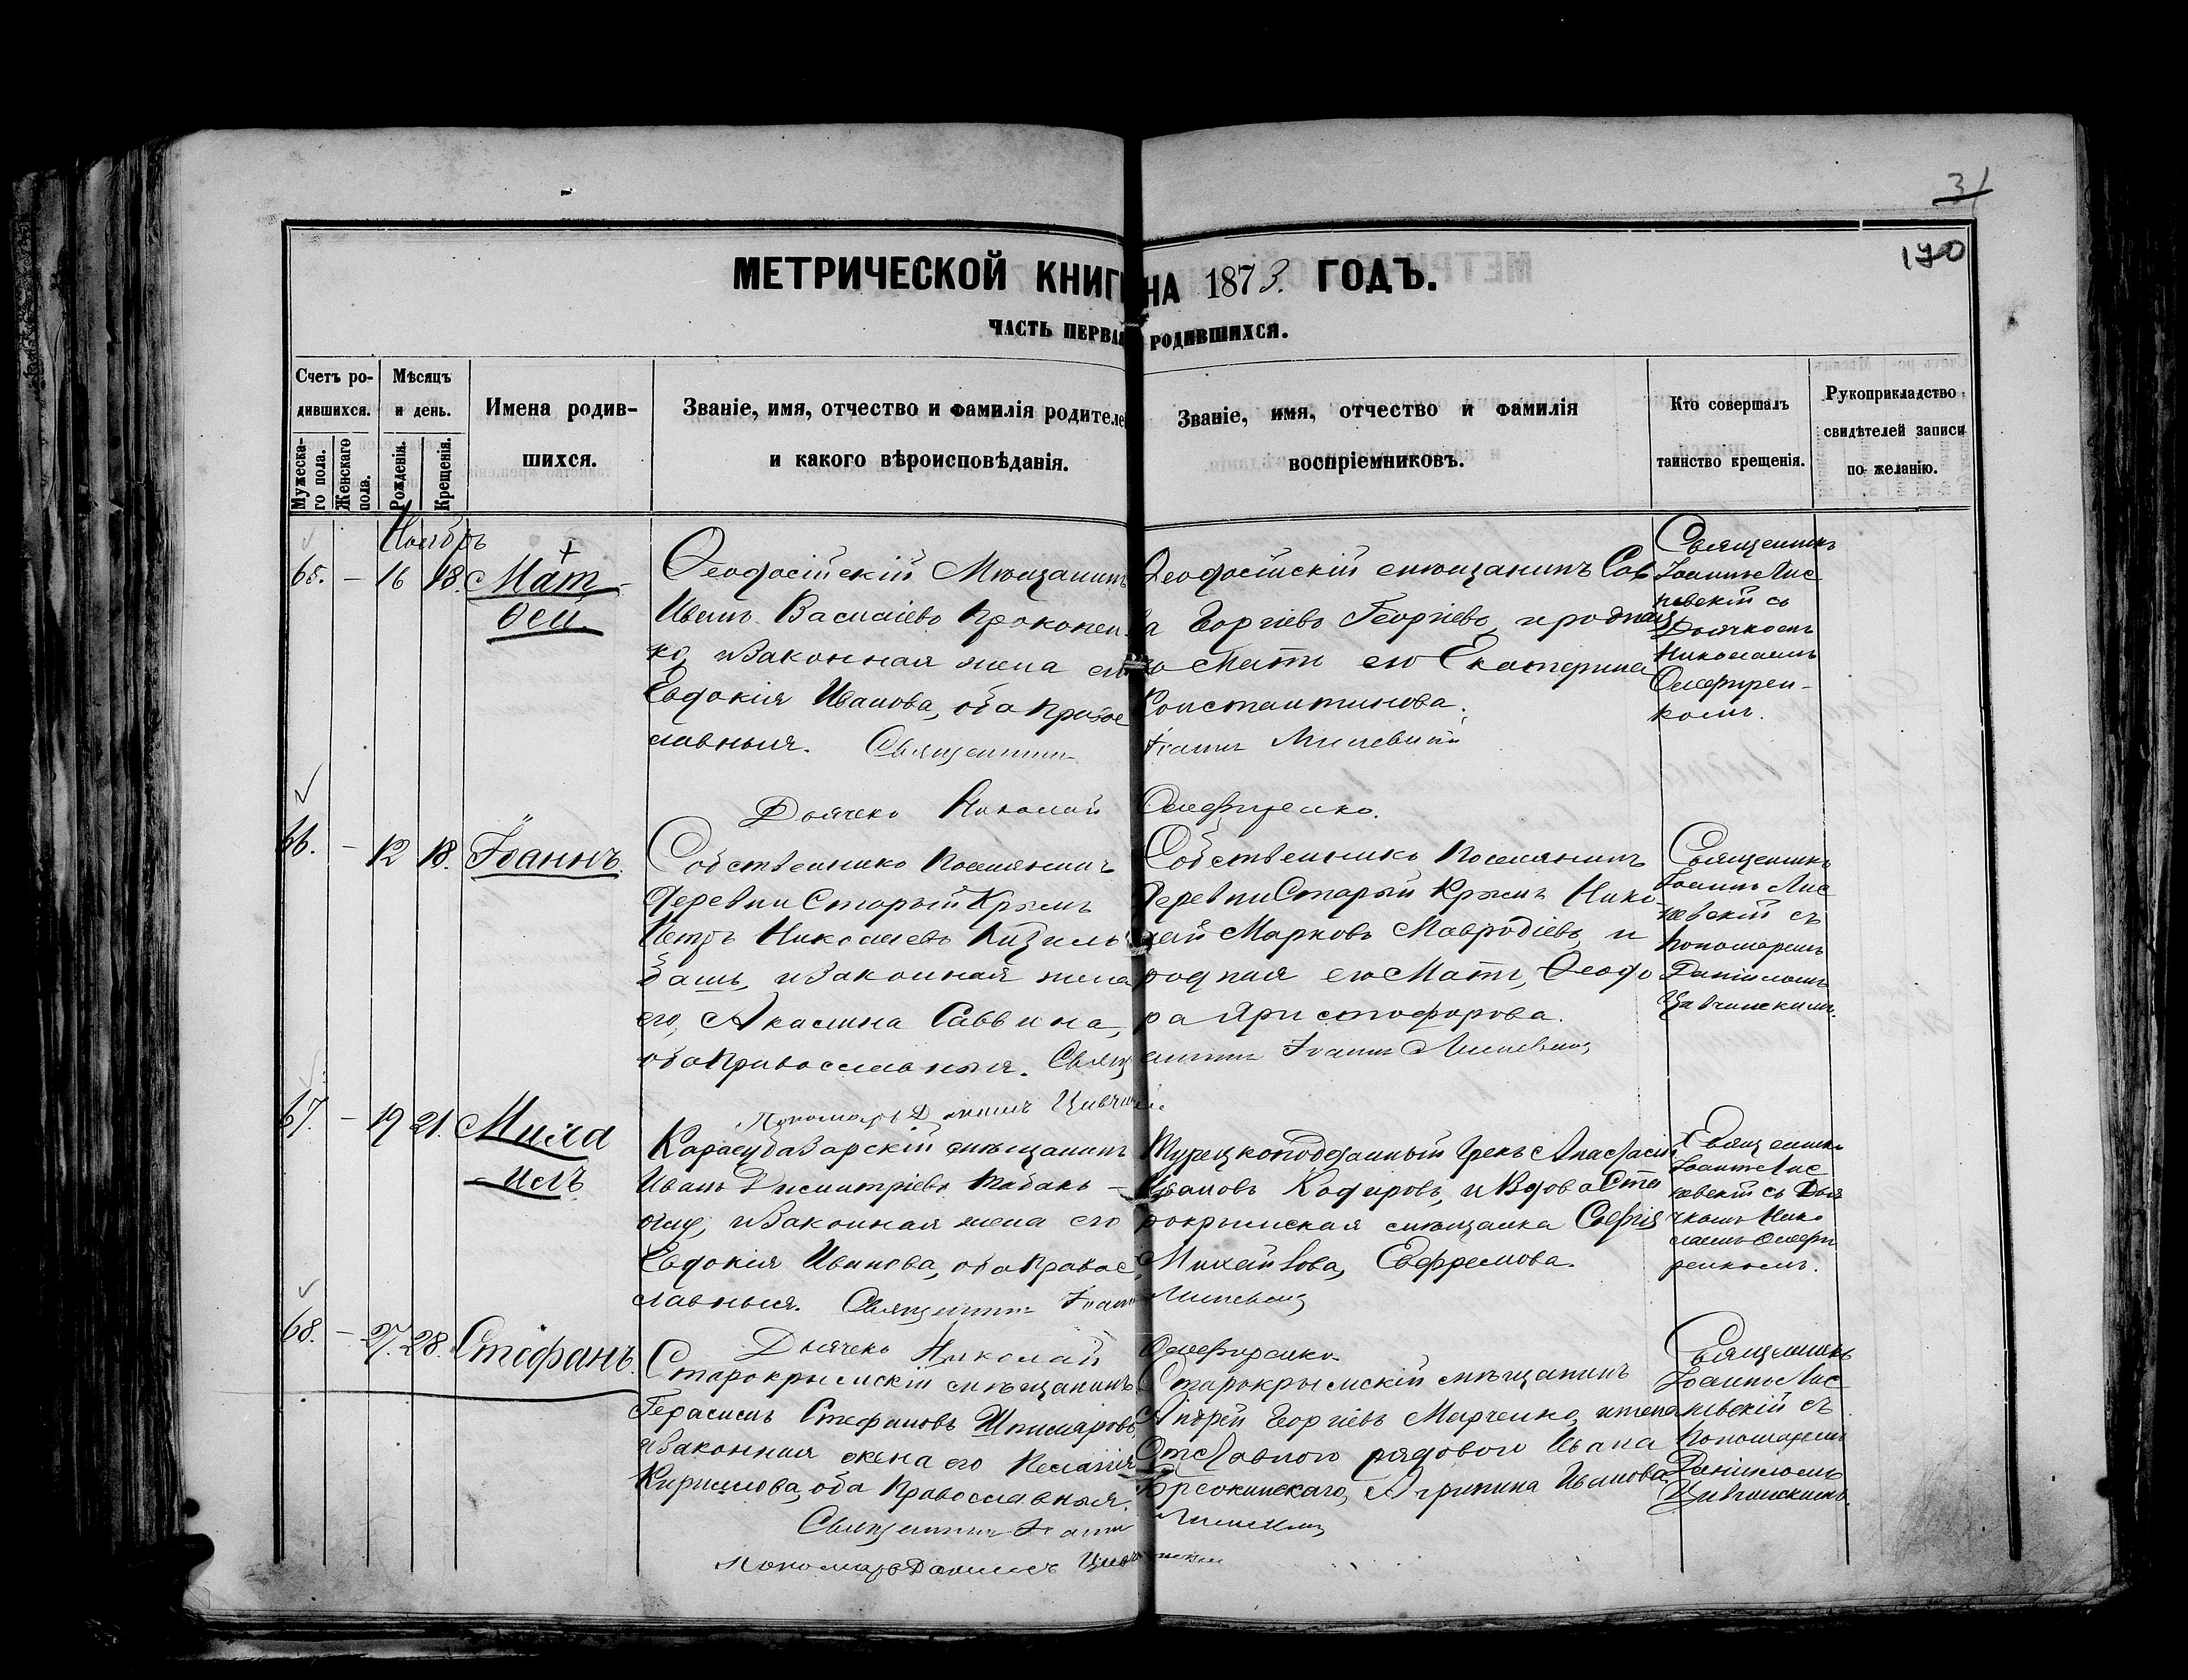 31
170
МЕТРИЧЕСКОЙ КНИГ НА 1873. ГОДЪ.
ЧАСТЬ ПЕРВАЯ РОДИВШИХСЯ.
Счетъ ро-
дившихся.
Мужеска-
го пола.
Женскаго
пола.
Мѣсяцъ
и день.
Рожденія.
Крещенія.
Имена родив-
шихся.
Званіе, имя, отчество и фамилія родителе
и какого вѣроисповѣданія.
Званіе, имя, отчество и фамилія
воспріемниковъ.
Кто совершалъ
таинство крещенія.
Рукоприкладство
свидѣтелей записи
по желанію.
Ноябрь
65. — 16 18. Мат-
ѳей
Ѳеодосійскій Мѣщанинъ
Иванъ Василіевъ Прокопен-
ко, и законная жена его
Евдокія Иванова, оба право
славныя. Священникъ
Дьячекъ Николай
Ѳеодосійскій мѣщанинъ Сав
ва Георгіевъ Георгіевъ, и родная
Мать его Екатерина
Константинова.
Іоаннъ
Священникъ
Іоаннъ
съ
Дьячкомъ
Николаемъ
66. — 12 18. Іоаннъ.
Собственникъ Поселянинъ
Деревни Старый Крымъ
Петръ Николаевъ Кизиль
башъ, и законная жена
его, Акилина Саввина,
оба Православныя. Свящ
Собственникъ Поселянинъ
Деревни Старый Крымъ Нико
лай Марковъ Мавродіевъ, и
родная его Мать, Ѳеодо
ра Христофорова.
енникъ Іоаннъ
Священникъ
Іоаннъ
съ
Пономаремъ
Даніиломъ
67. — 19 21. Миха
илъ
Пономарь Даніилъ
Карасубазарскій мѣщанинъ
Иванъ Димитріевъ Табакъ-
оглу, и законная жена его
Евдокія Иванова, оба правос
славныя. Священникъ Іоаннъ
Дьячекъ Николай
Турецкоподданный Грекъ Анастасій
Ивановъ и Вдова Ста
рокрымская мѣщанка Софія
Михайлова, Ефремова.
Священникъ
Іоаннъ
съ Дья
чкомъ Нико
лаемъ
68. — 27. 28. Стефанъ.
Старокрымскій мѣщанинъ
Герасимъ Стефановъ
и законная жена его Пелагія
Кириллова, оба Православныя.
Священникъ Іоаннъ
Пономарь Даніилъ
Старокрымскій мѣщанинъ
Андрей Георгіевъ Марченко, и жена
Отставного рядового Ивана
Агрипина Иванова
Священникъ
Іоаннъ
съ
Пономаремъ
Даніиломъ